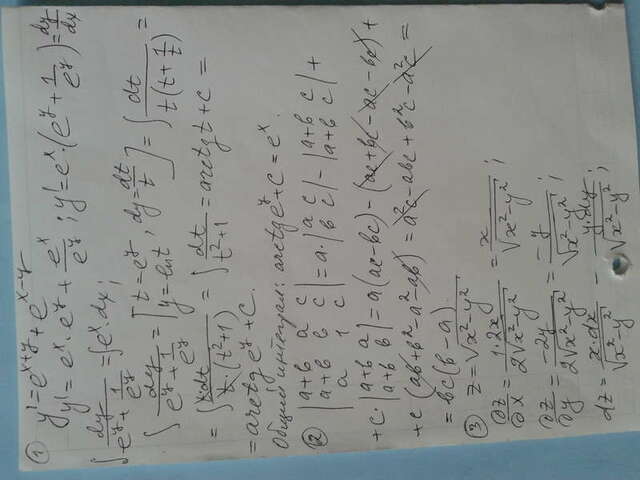 ① y' = e^{x+y} + e^{x-y}
y' = e^x · e^y + e^x/e^y ; y' = e^x · (e^y + 1/e^y) = dy/dx
∫ dy/(e^y + 1/e^y) = ∫ e^x · dx ;
∫ dy/(e^y + 1/e^y) = [t = e^y, y = ln t, dy = dt/t] = ∫ dt/(t(t + 1/t)) =
= ∫ tdt/(t(t²+1)) = ∫ dt/(t²+1) = arctg t + c =
= arctg e^y + c.
Общий интеграл: arctg e^y + c = e^x.
② |a+b a c; a+b b c; a 1 c| = a · |a c; b c| - |a+b c; a+b c| +
+ c · |a+b a; a+b b| = a(ac - bc) - (ac + bc - ac - bc) +
+ c (ab + b² - a² - ab) = a²c - abc + b²c - a²c =
= bc(b - a)
③ z = √(x² - y²)
∂z/∂x = 1·2x/(2√(x² - y²)) = x/√(x² - y²) ;
∂z/∂y = -2y/(2√(x² - y²)) = - y/√(x² - y²) ;
dz = x·dx/√(x² - y²) - y·dy/√(x² - y²) ;